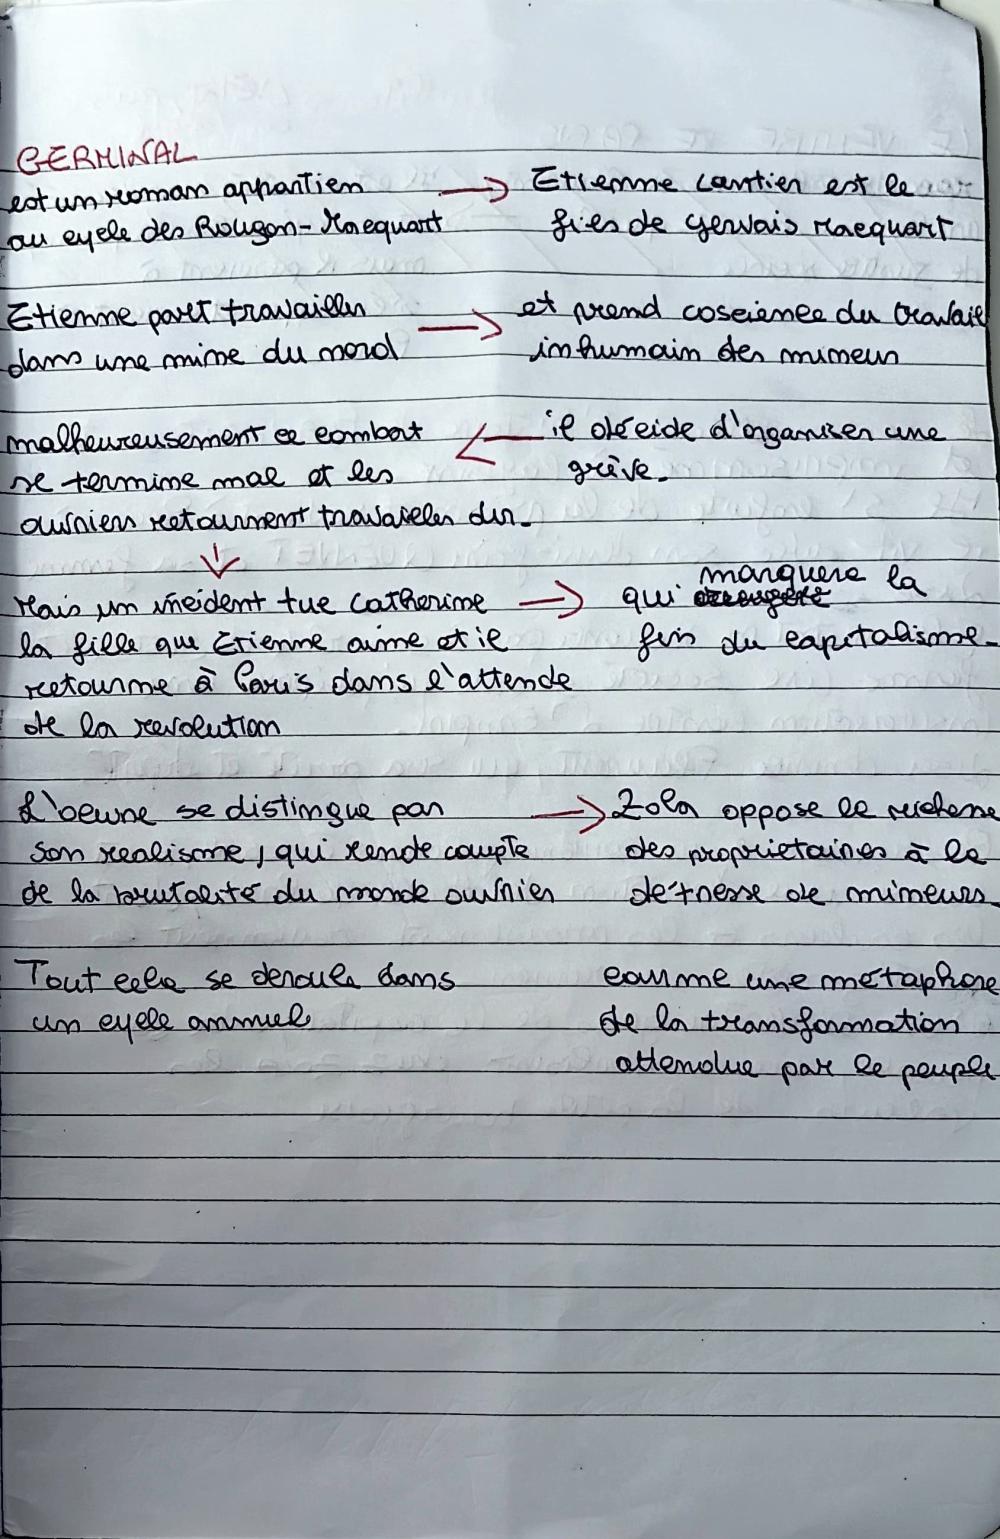 GERMINAL
est un roman appartien
au cycle des Rougon-Macquart
Etienne Lantier est le
fils de Gervais Macquart
Etienne part travailler
dans une mine du nord
et prend coscience du travail
inhumain des mineur
il décide d'organiser une
grève.
malheureusement ce combat
se termine mal et les
ouvriers retournent travailler dur.
Mais un incident tue Catherine
la fille que Etienne aime et il
retourne à Paris dans l'attende
de la revolution
qui marquera la
fin du capitalisme.
L'oeuvre se distingue par
son realisme, qui rende compte
de la brutalité du monde ouvrier
Zola oppose le richesse
des proprietaires à la
detresse de mineurs.
Tout cela se deroule dans
un cycle annuel
comme une métaphore
de la transformation
attendue par le peuple